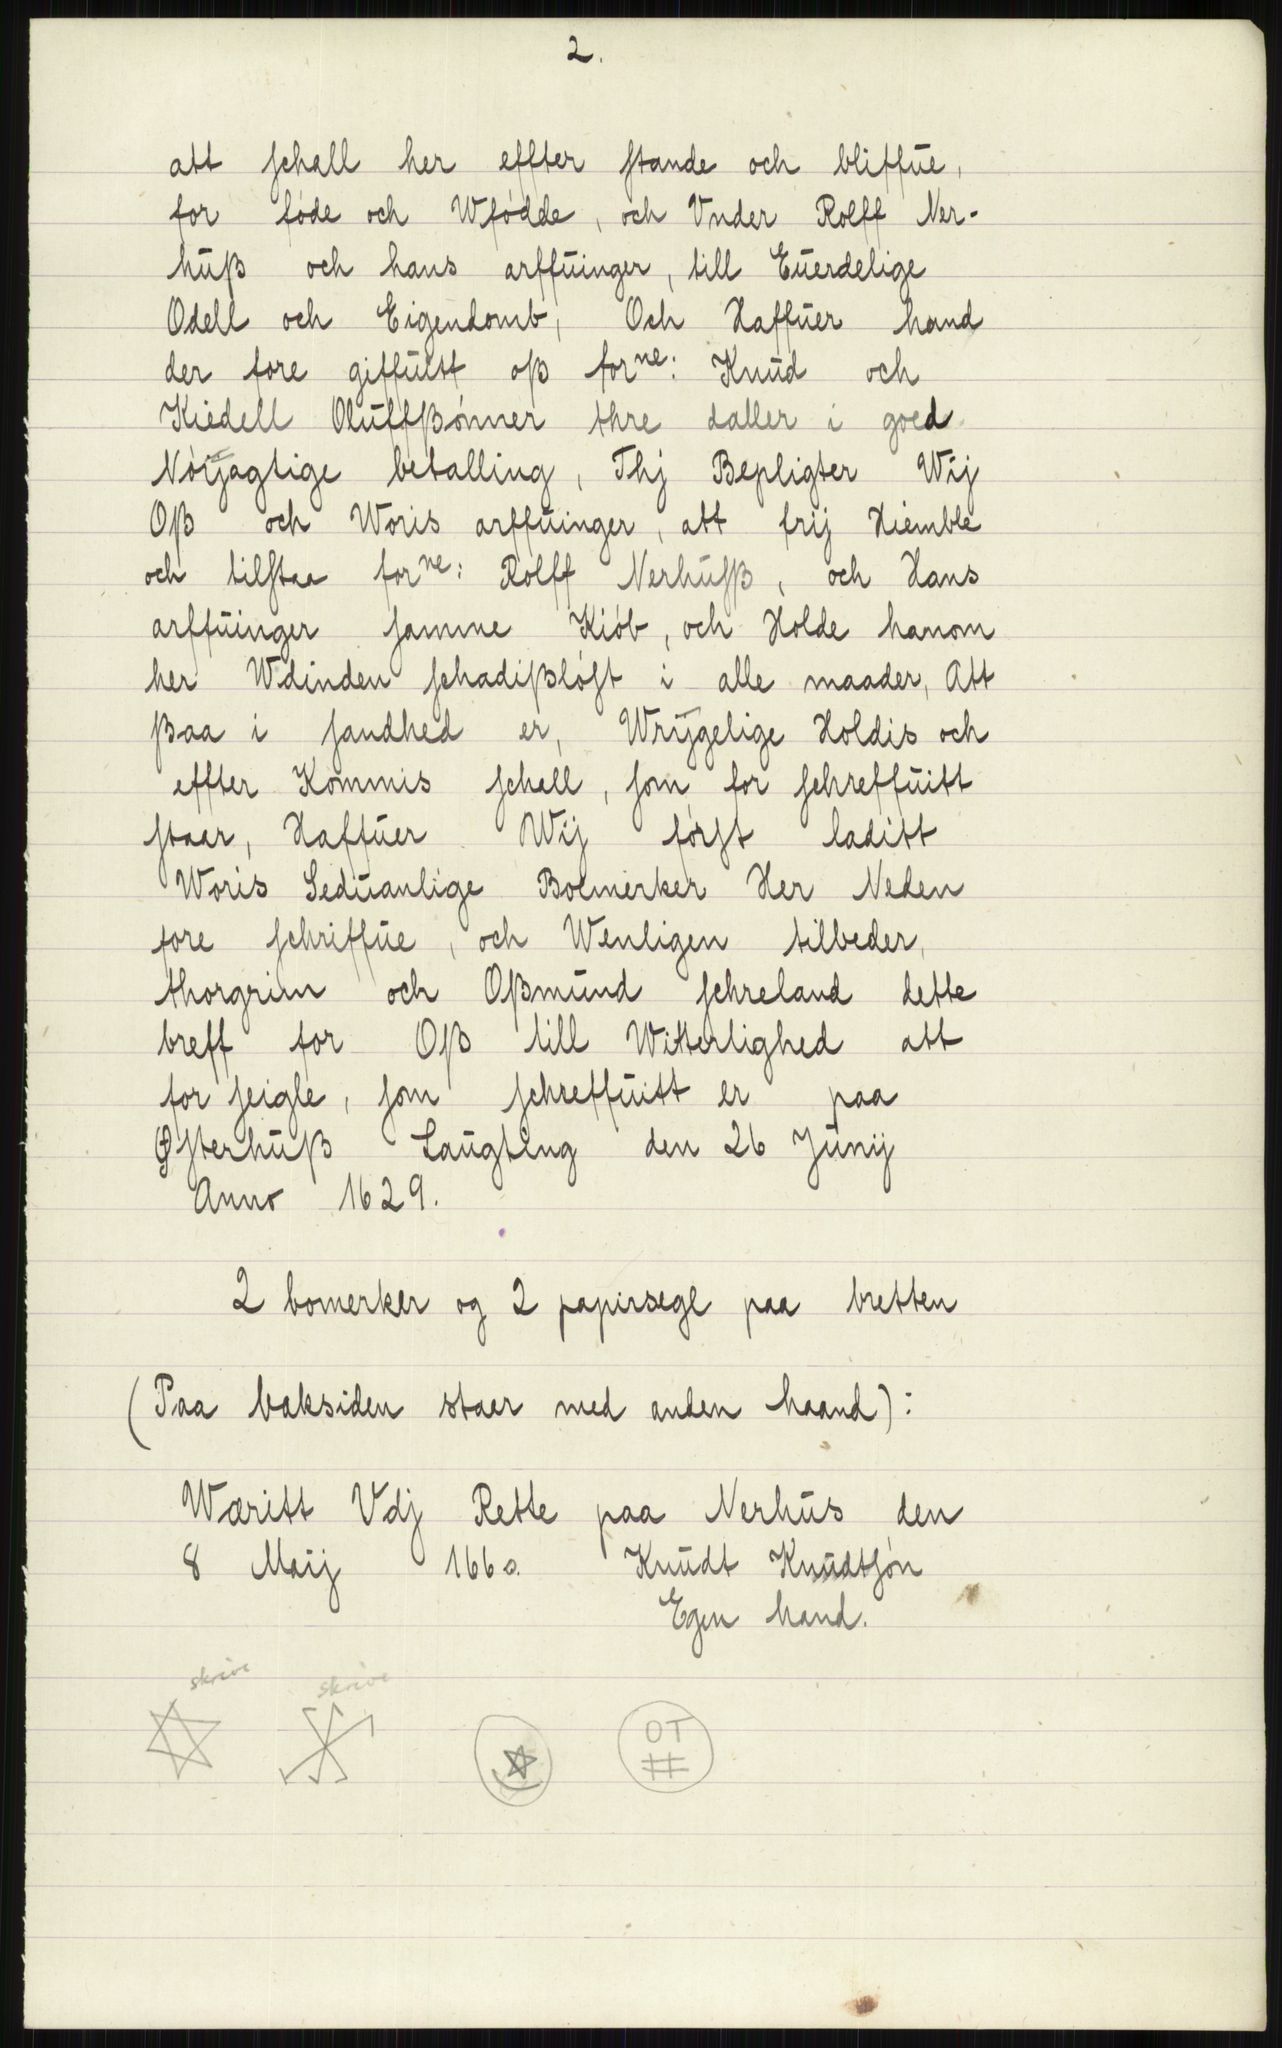 2.
att schall her effter stande och bliffue,
for føde och Wfødde, och Vnder Rolff Ner-
huß och hans arffuinger, till Euerdelige
Odell och Eigendomb, Och Haffuer hand
der fore giffuitt oß forne: Knud och
Kiedell Oluffßønner thre daller i goed
Nøijagtige betalling, Thj Bepligter Wij
Oß och Woris arffuinger, att frij Hiemble
och tilstaa forne: Rolff Nerhusß, och Hans
arffuinger samme Kiøb, och Holde hanom
her Wdinden schadißløst i alle maader, Att
ßaa i sandhed er, Wrÿgelige Holdis och
effter Kommis schall, som for schreffuitt
staar, Haffuer Wij først laditt
Woris Seduanlige Bolmerker Her Neden
fore schriffue, och Wenligen tilbeder,
thorgrim och Oßmund schreland dette
breff for Oß till Witterlighed att
for seigle, som schreffuitt er paa
Østerhuß Laugting den 26 Junij
Anno 1629.
2 bomerker og 2 papirsegl paa bretten
(Paa baksiden staar med anden haand):
Wæritt Vdj Rette paa Nerhus den
8 Maij 1660. Knudt Knudtsøn
Egen hand.
skrive skrive
OT